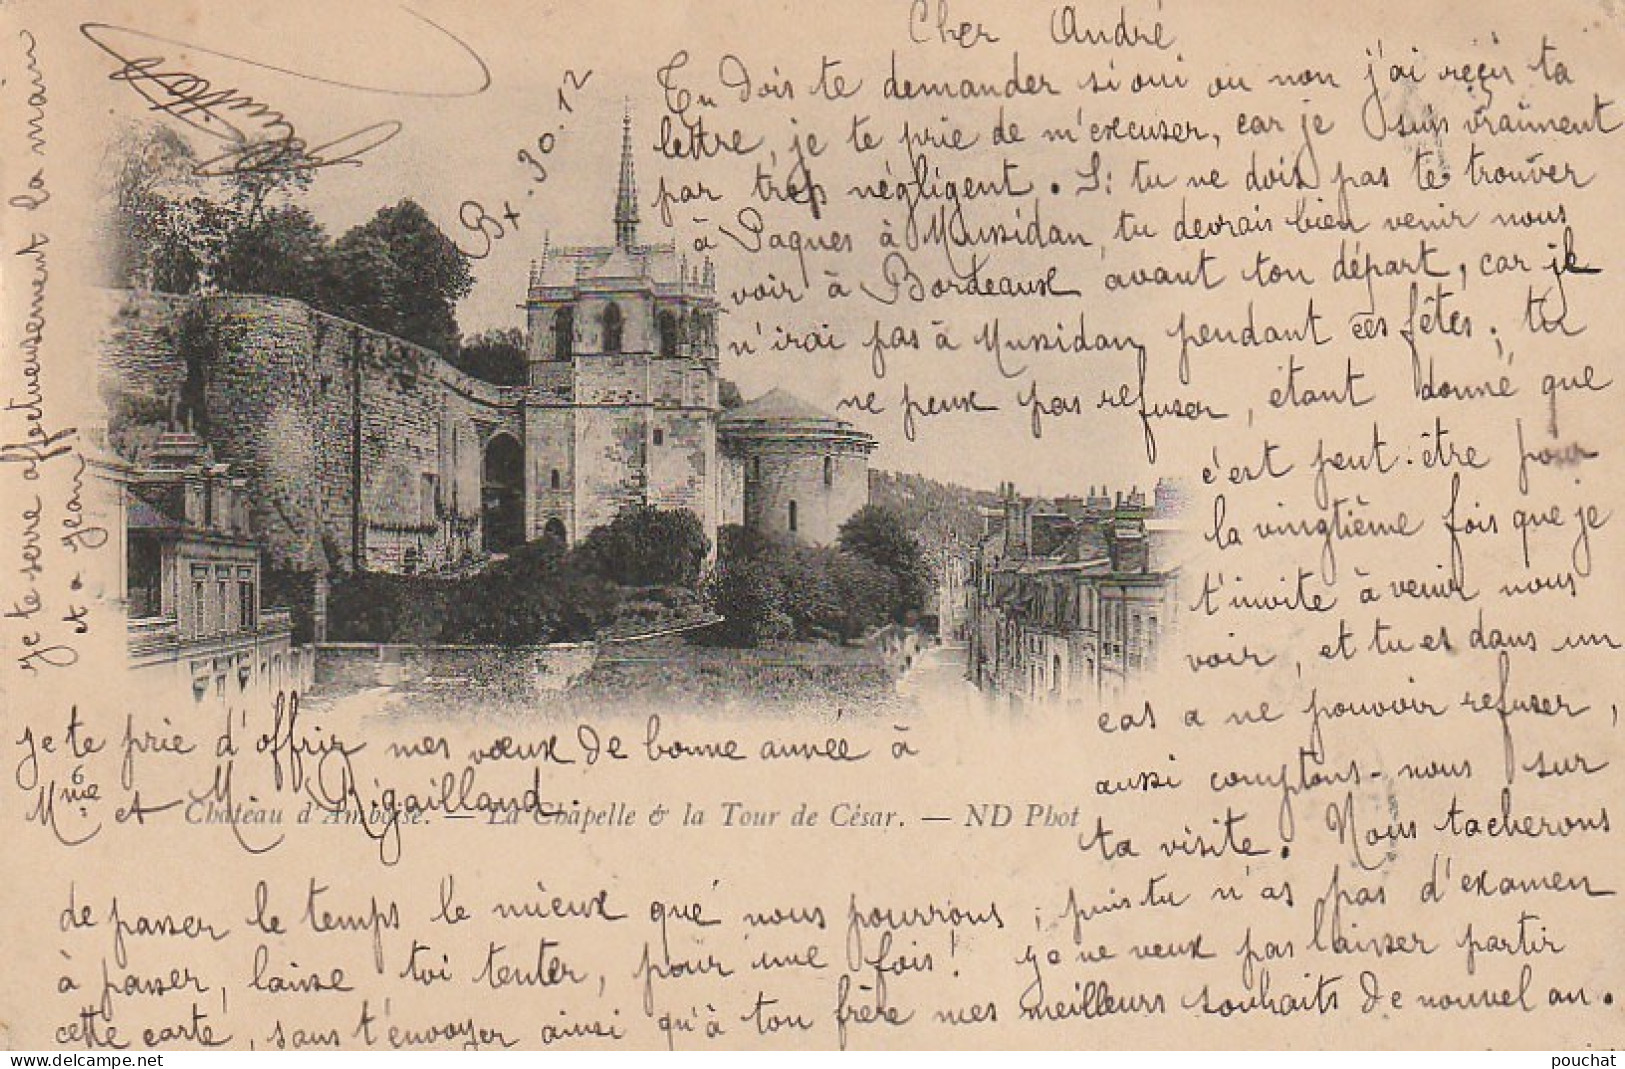 Cher André
Tu dois te demander si oui ou non j'ai reçu ta
lettre, je te prie de m'excuser, car je suis vraiment
par trop négligent. Si tu ne dois pas te trouver
à Paques à Mussidan, tu devrais bien venir nous
voir à Bordeaux avant ton départ, car je
n'irai pas à Mussidan pendant ces fêtes; tu
ne peux pas refuser, étant donné que
c'est peut-être pour
la vingtième fois que je
t'invite à venir nous
voir, et tu es dans un
cas a ne pouvoir refuser,
aussi comptons-nous sur
ta visite. Nous tacherons
de passer le temps le mieux que nous pourrons; puis tu n'as pas d'examen
à passer, laisse toi tenter, pour une fois! Je ne veux pas laisser partir
cette carte, sans t'envoyer ainsi qu'à ton frère mes meilleurs souhaits de nouvel an.
Je te prie d'offrir mes vœux de bonne année à
Mme et M. Rigailland.
Je te serre affectueusement la main
et a Jean
Bx. 30.12
Château d'Amboise. — La Chapelle & la Tour de César. — ND Phot
6
pouchat
www.delcampe.net